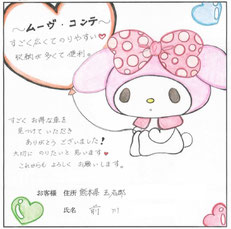 ～ムーヴ・コンテ～
すごく広くてのりやすい♡
収納が多くて便利。
すごくお得な車を
見つけていただき
ありがとうございました!
大切にのりたいと思います♥
これからもよろしくお願いします。
お客様 住所 熊本県玉名郡
氏名 前川